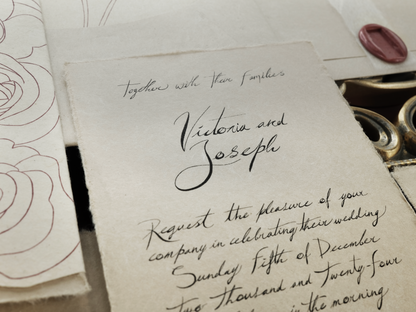 together with their families
Victoria and
Joseph
Request the pleasure of your
company in celebrating their wedding
Sunday Fifth of December
Two Thousand and Twenty-four
in the morning